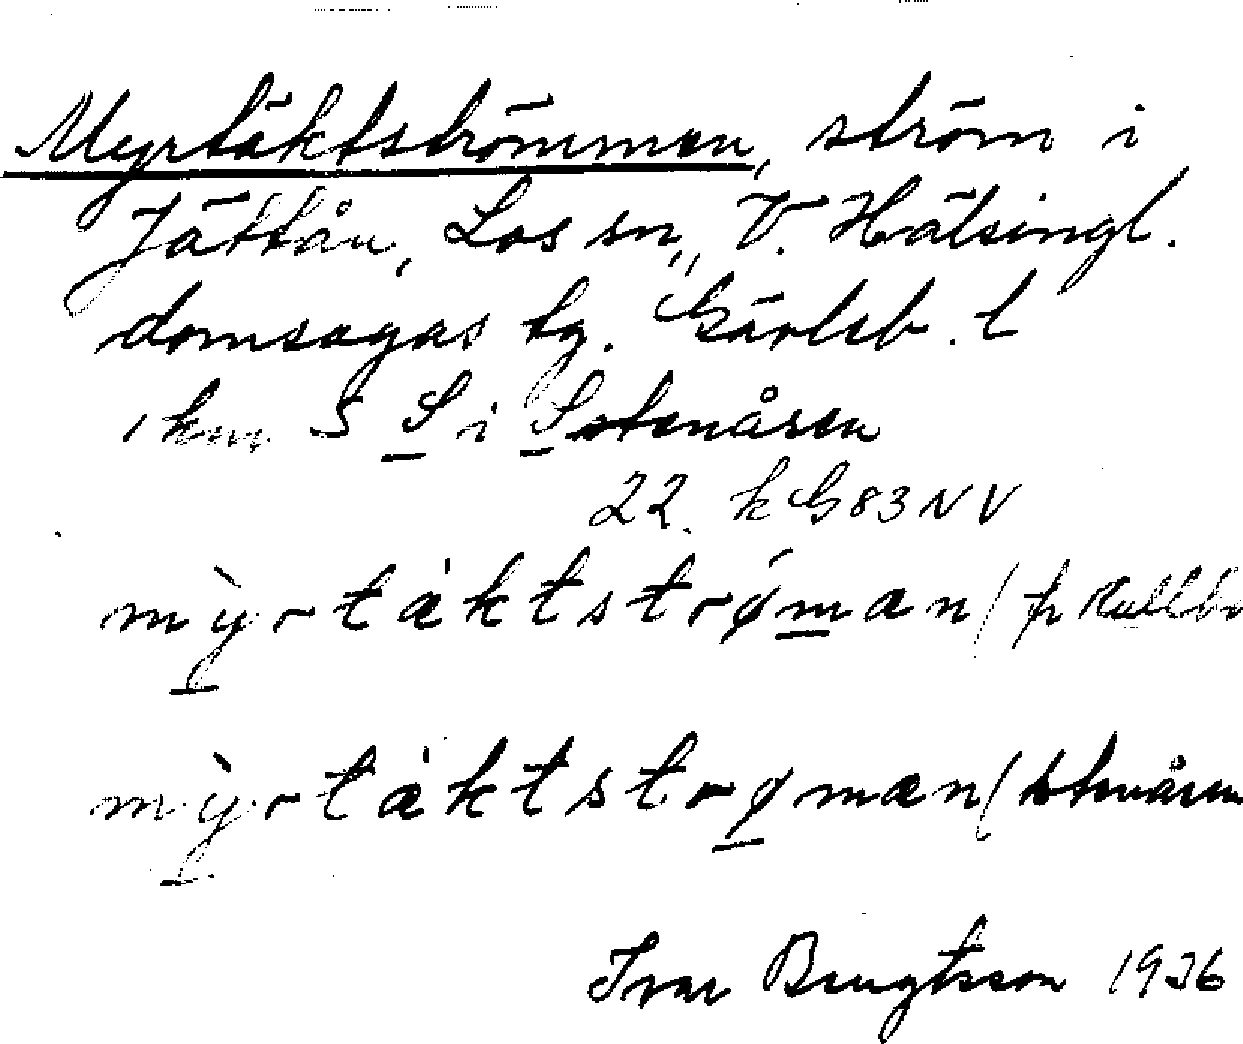 Myrtäktströmmen, ström i
Jättån, Los sn, V. Hälsingl.
domsagas tg. Gävleb. l
1 km S S i Stenåsen
22. k G 83 NV
mỳrtäktstrøman (fr Kullbo
mỳrtäktstrøman (stenåsen
Ivar Bengtsson 1936